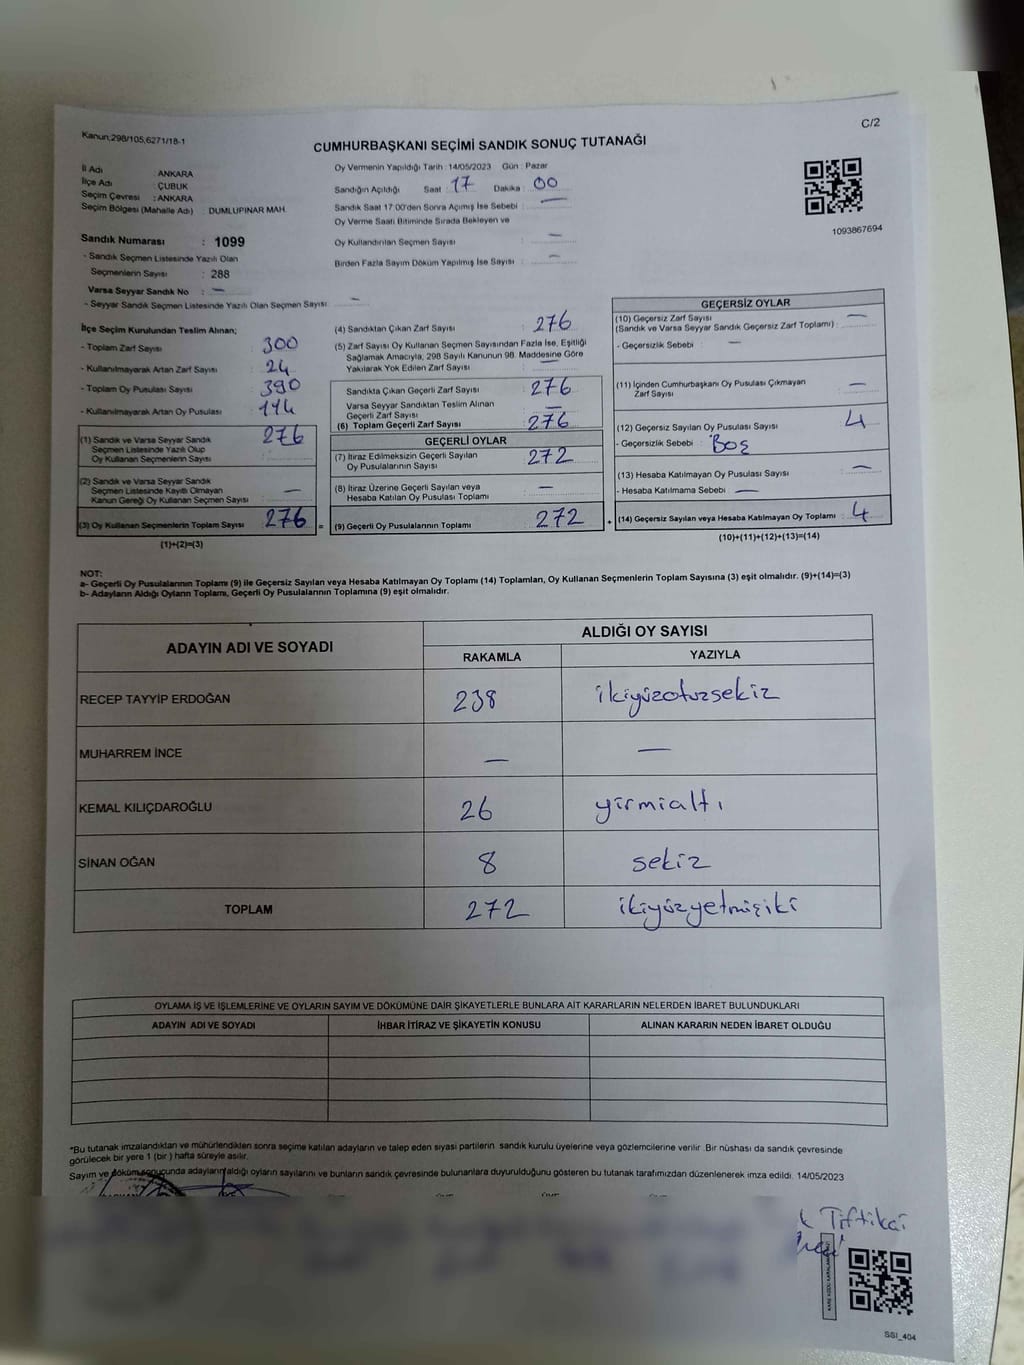 Kanun;298/105,6271/18-1
C/2
CUMHURBAŞKANI SEÇİMİ SANDIK SONUÇ TUTANAĞI
İl Adı : ANKARA
İlçe Adı : ÇUBUK
Seçim Çevresi : ANKARA
Seçim Bölgesi (Mahalle Adı) : DUMLUPINAR MAH.
Oy Vermenin Yapıldığı Tarih : 14/05/2023 Gün : Pazar
Sandığın Açıldığı Saat : 17 Dakika : 00
Sandık Saat 17:00'den Sonra Açımış İse Sebebi : —
Oy Verme Saati Bitiminde Sırada Bekleyen ve
Oy Kullandırılan Seçmen Sayısı : —
Birden Fazla Sayım Döküm Yapılmış İse Sayısı : —
1093867694
Sandık Numarası : 1099
- Sandık Seçmen Listesinde Yazılı Olan
Seçmenlerin Sayısı : 288
Varsa Seyyar Sandık No : —
- Seyyar Sandık Seçmen Listesinde Yazılı Olan Seçmen Sayısı : —
İlçe Seçim Kurulundan Teslim Alınan;
- Toplam Zarf Sayısı : 300
- Kullanılmayarak Artan Zarf Sayısı : 24
- Toplam Oy Pusulası Sayısı : 390
- Kullanılmayarak Artan Oy Pusulası : 114
(1) Sandık ve Varsa Seyyar Sandık
Seçmen Listesinde Yazılı Olup
Oy Kullanan Seçmenlerin Sayısı : 276
(2) Sandık ve Varsa Seyyar Sandık
Seçmen Listesinde Kayıtlı Olmayan
Kanun Gereği Oy Kullanan Seçmen Sayısı : —
(3) Oy Kullanan Seçmenlerin Toplam Sayısı : 276
(1)+(2)=(3)
(4) Sandıktan Çıkan Zarf Sayısı : 276
(5) Zarf Sayısı Oy Kullanan Seçmen Sayısından Fazla İse, Eşitliği
Sağlamak Amacıyla, 298 Sayılı Kanunun 98. Maddesine Göre
Yakılarak Yok Edilen Zarf Sayısı : —
Sandıkta Çıkan Geçerli Zarf Sayısı : 276
Varsa Seyyar Sandıktan Teslim Alınan
Geçerli Zarf Sayısı : —
(6) Toplam Geçerli Zarf Sayısı : 276
GEÇERLİ OYLAR
(7) İtiraz Edilmeksizin Geçerli Sayılan
Oy Pusulalarının Sayısı : 272
(8) İtiraz Üzerine Geçerli Sayılan veya
Hesaba Katılan Oy Pusulası Toplamı : —
= (9) Geçerli Oy Pusulalarının Toplamı : 272
GEÇERSİZ OYLAR
(10) Geçersiz Zarf Sayısı
(Sandık ve Varsa Seyyar Sandık Geçersiz Zarf Toplamı) : —
- Geçersizlik Sebebi : —
(11) İçinden Cumhurbaşkanı Oy Pusulası Çıkmayan
Zarf Sayısı : —
(12) Geçersiz Sayılan Oy Pusulası Sayısı : 4
- Geçersizlik Sebebi : Boş
(13) Hesaba Katılmayan Oy Pusulası Sayısı : —
- Hesaba Katılmama Sebebi : —
+ (14) Geçersiz Sayılan veya Hesaba Katılmayan Oy Toplamı : 4
(10)+(11)+(12)+(13)=(14)
NOT:
a- Geçerli Oy Pusulalarının Toplamı (9) ile Geçersiz Sayılan veya Hesaba Katılmayan Oy Toplamı (14) Toplamları, Oy Kullanan Seçmenlerin Toplam Sayısına (3) eşit olmalıdır. (9)+(14)=(3)
b- Adayların Aldığı Oyların Toplamı, Geçerli Oy Pusulalarının Toplamına (9) eşit olmalıdır.
ADAYIN ADI VE SOYADI
ALDIĞI OY SAYISI
RAKAMLA YAZIYLA
RECEP TAYYİP ERDOĞAN 238 ikiyüzotuzsekiz
MUHARREM İNCE — —
KEMAL KILIÇDAROĞLU 26 yirmialtı
SİNAN OĞAN 8 sekiz
TOPLAM 272 ikiyüzyetmişiki
OYLAMA İŞ VE İŞLEMLERİNE VE OYLARIN SAYIM VE DÖKÜMÜNE DAİR ŞİKAYETLERLE BUNLARA AİT KARARLARIN NELERDEN İBARET BULUNDUKLARI
ADAYIN ADI VE SOYADI İHBAR İTİRAZ VE ŞİKAYETİN KONUSU ALINAN KARARIN NEDEN İBARET OLDUĞU
*Bu tutanak imzalandıktan ve mühürlendikten sonra seçime katılan adayların ve talep eden siyasi partilerin sandık kurulu üyelerine veya gözlemcilerine verilir. Bir nüshası da sandık çevresinde
görülecek bir yere 1 (bir ) hafta süreyle asılır.
Sayım ve döküm sonucunda adayların aldığı oyların sayılarını ve bunların sandık çevresinde bulunanlara duyurulduğunu gösteren bu tutanak tarafımızdan düzenlenerek imza edildi. 14/05/2023
Tiftikçi
SSI_404